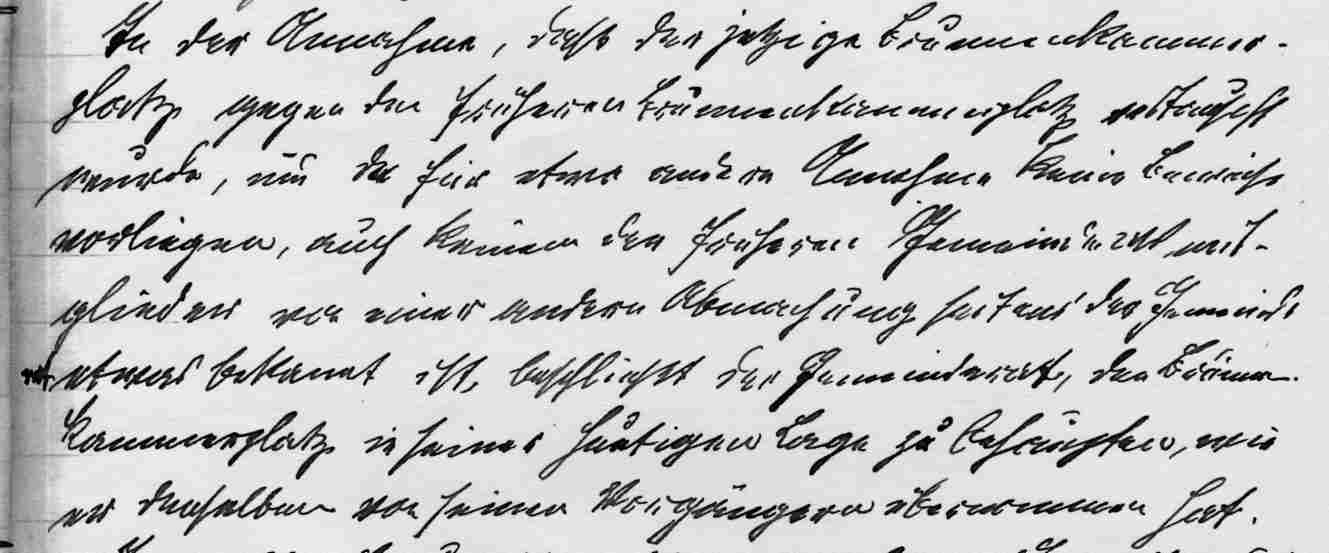 In der Annahme, daß der jetzige Brunnenkammer-
platz gegen den früheren Brunnenkammerplatz vertauscht
wurde, und da für etwas andere Annahme keine Beweise
vorliegen, auch keinem der früheren Gemeinderatsmit-
glieder von einer andern Abmachung seitens der Gemeinde
etwas bekannt ist, beschließt der Gemeinderat, den Brunnen-
kammerplatz in seiner heutigen Lage zu behaupten, wie
er denselben von seinen Vorgängern übernommen hat.